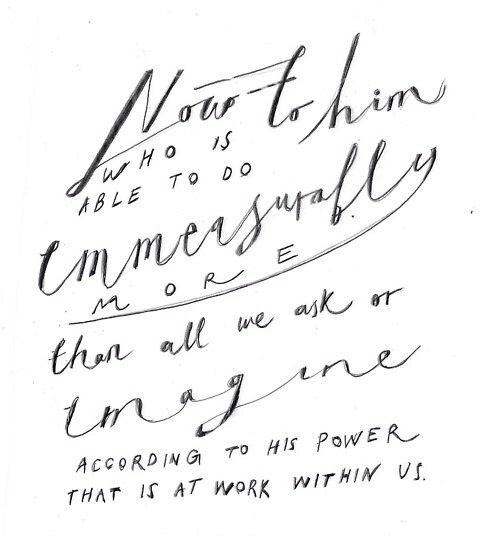 Now to him
WHO IS
ABLE TO DO
immeasurably
MORE
than all we ask or
imagine
ACCORDING TO HIS POWER
THAT IS AT WORK WITHIN US.